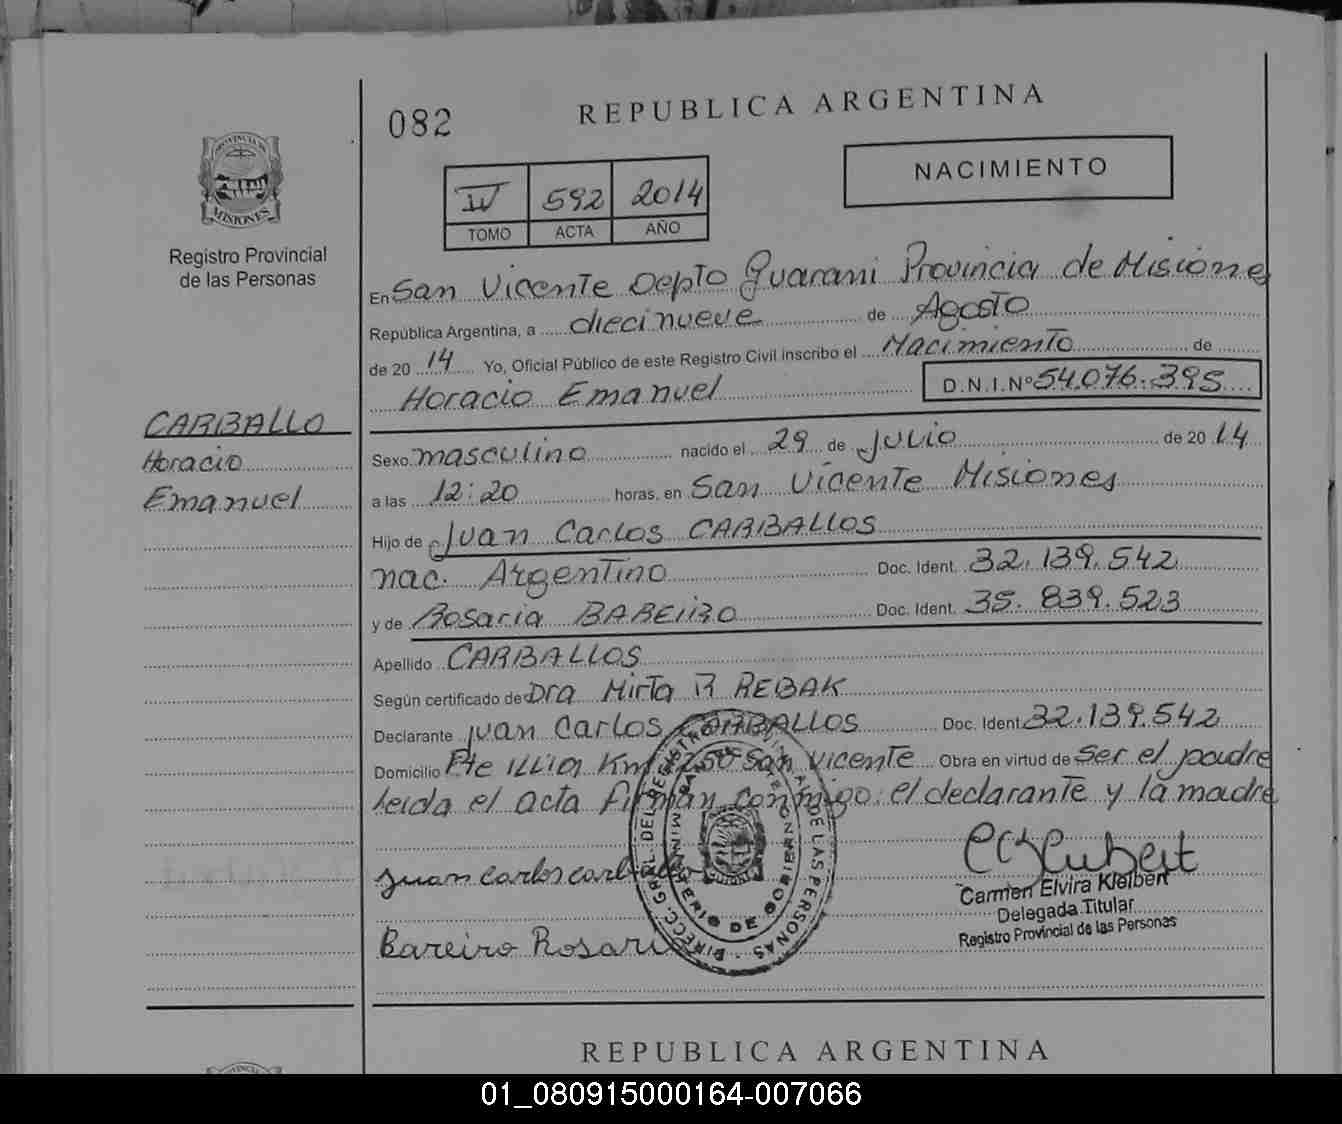 082
REPUBLICA ARGENTINA
NACIMIENTO
IV 592 2014
TOMO ACTA AÑO
PROVINCIA DE
MISIONES
Registro Provincial
de las Personas
CARBALLO
Horacio
Emanuel
En San Vicente Depto Guarani Provincia de Misiones
República Argentina, a diecinueve de Agosto
de 2014 Yo, Oficial Público de este Registro Civil inscribo el Nacimiento de
Horacio Emanuel D.N.I.Nº 54.076.395
Sexo masculino nacido el 29 de Julio de 2014
a las 12:20 horas, en San Vicente Misiones
Hijo de Juan Carlos CARBALLOS
nac. Argentino Doc. Ident. 32.139.542
y de Rosaria BAREIRO Doc. Ident. 35.839.523
Apellido CARBALLOS
Según certificado de Dra Mirta R REBAK
Declarante Juan Carlos CARBALLOS Doc. Ident. 32.139.542
Domicilio Pte ILLIA Km 1260 San Vicente Obra en virtud de Ser el padre
Leida el acta firman conmigo: el declarante y la madre
Juan carlos carballo
Bareiro Rosari
DIRECC. GRL. DEL REGISTRO DE LAS PERSONAS
Carmen Elvira Kleibert
Delegada Titular
Registro Provincial de las Personas
REPUBLICA ARGENTINA
01_080915000164-007066